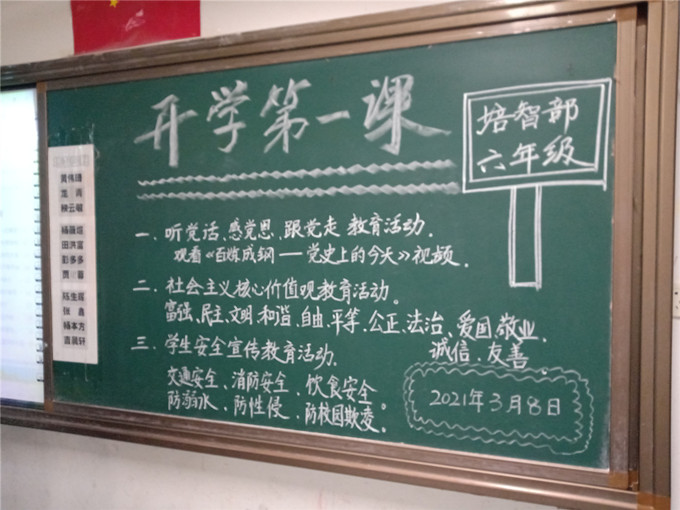 开学第一课
培智部
六年级
一、听党话、感党恩、跟党走 教育活动.
观看《百炼成钢——党史上的今天》视频.
二、社会主义核心价值观教育活动。
富强、民主、文明、和谐、自由、平等、公正、法治、爱国、敬业、
诚信、友善。
三、学生安全宣传教育活动.
交通安全、消防安全、饮食安全。
防溺水、防性侵、防校园欺凌。
2021年3月8日
田洪富
彭多多
张鑫
杨本方